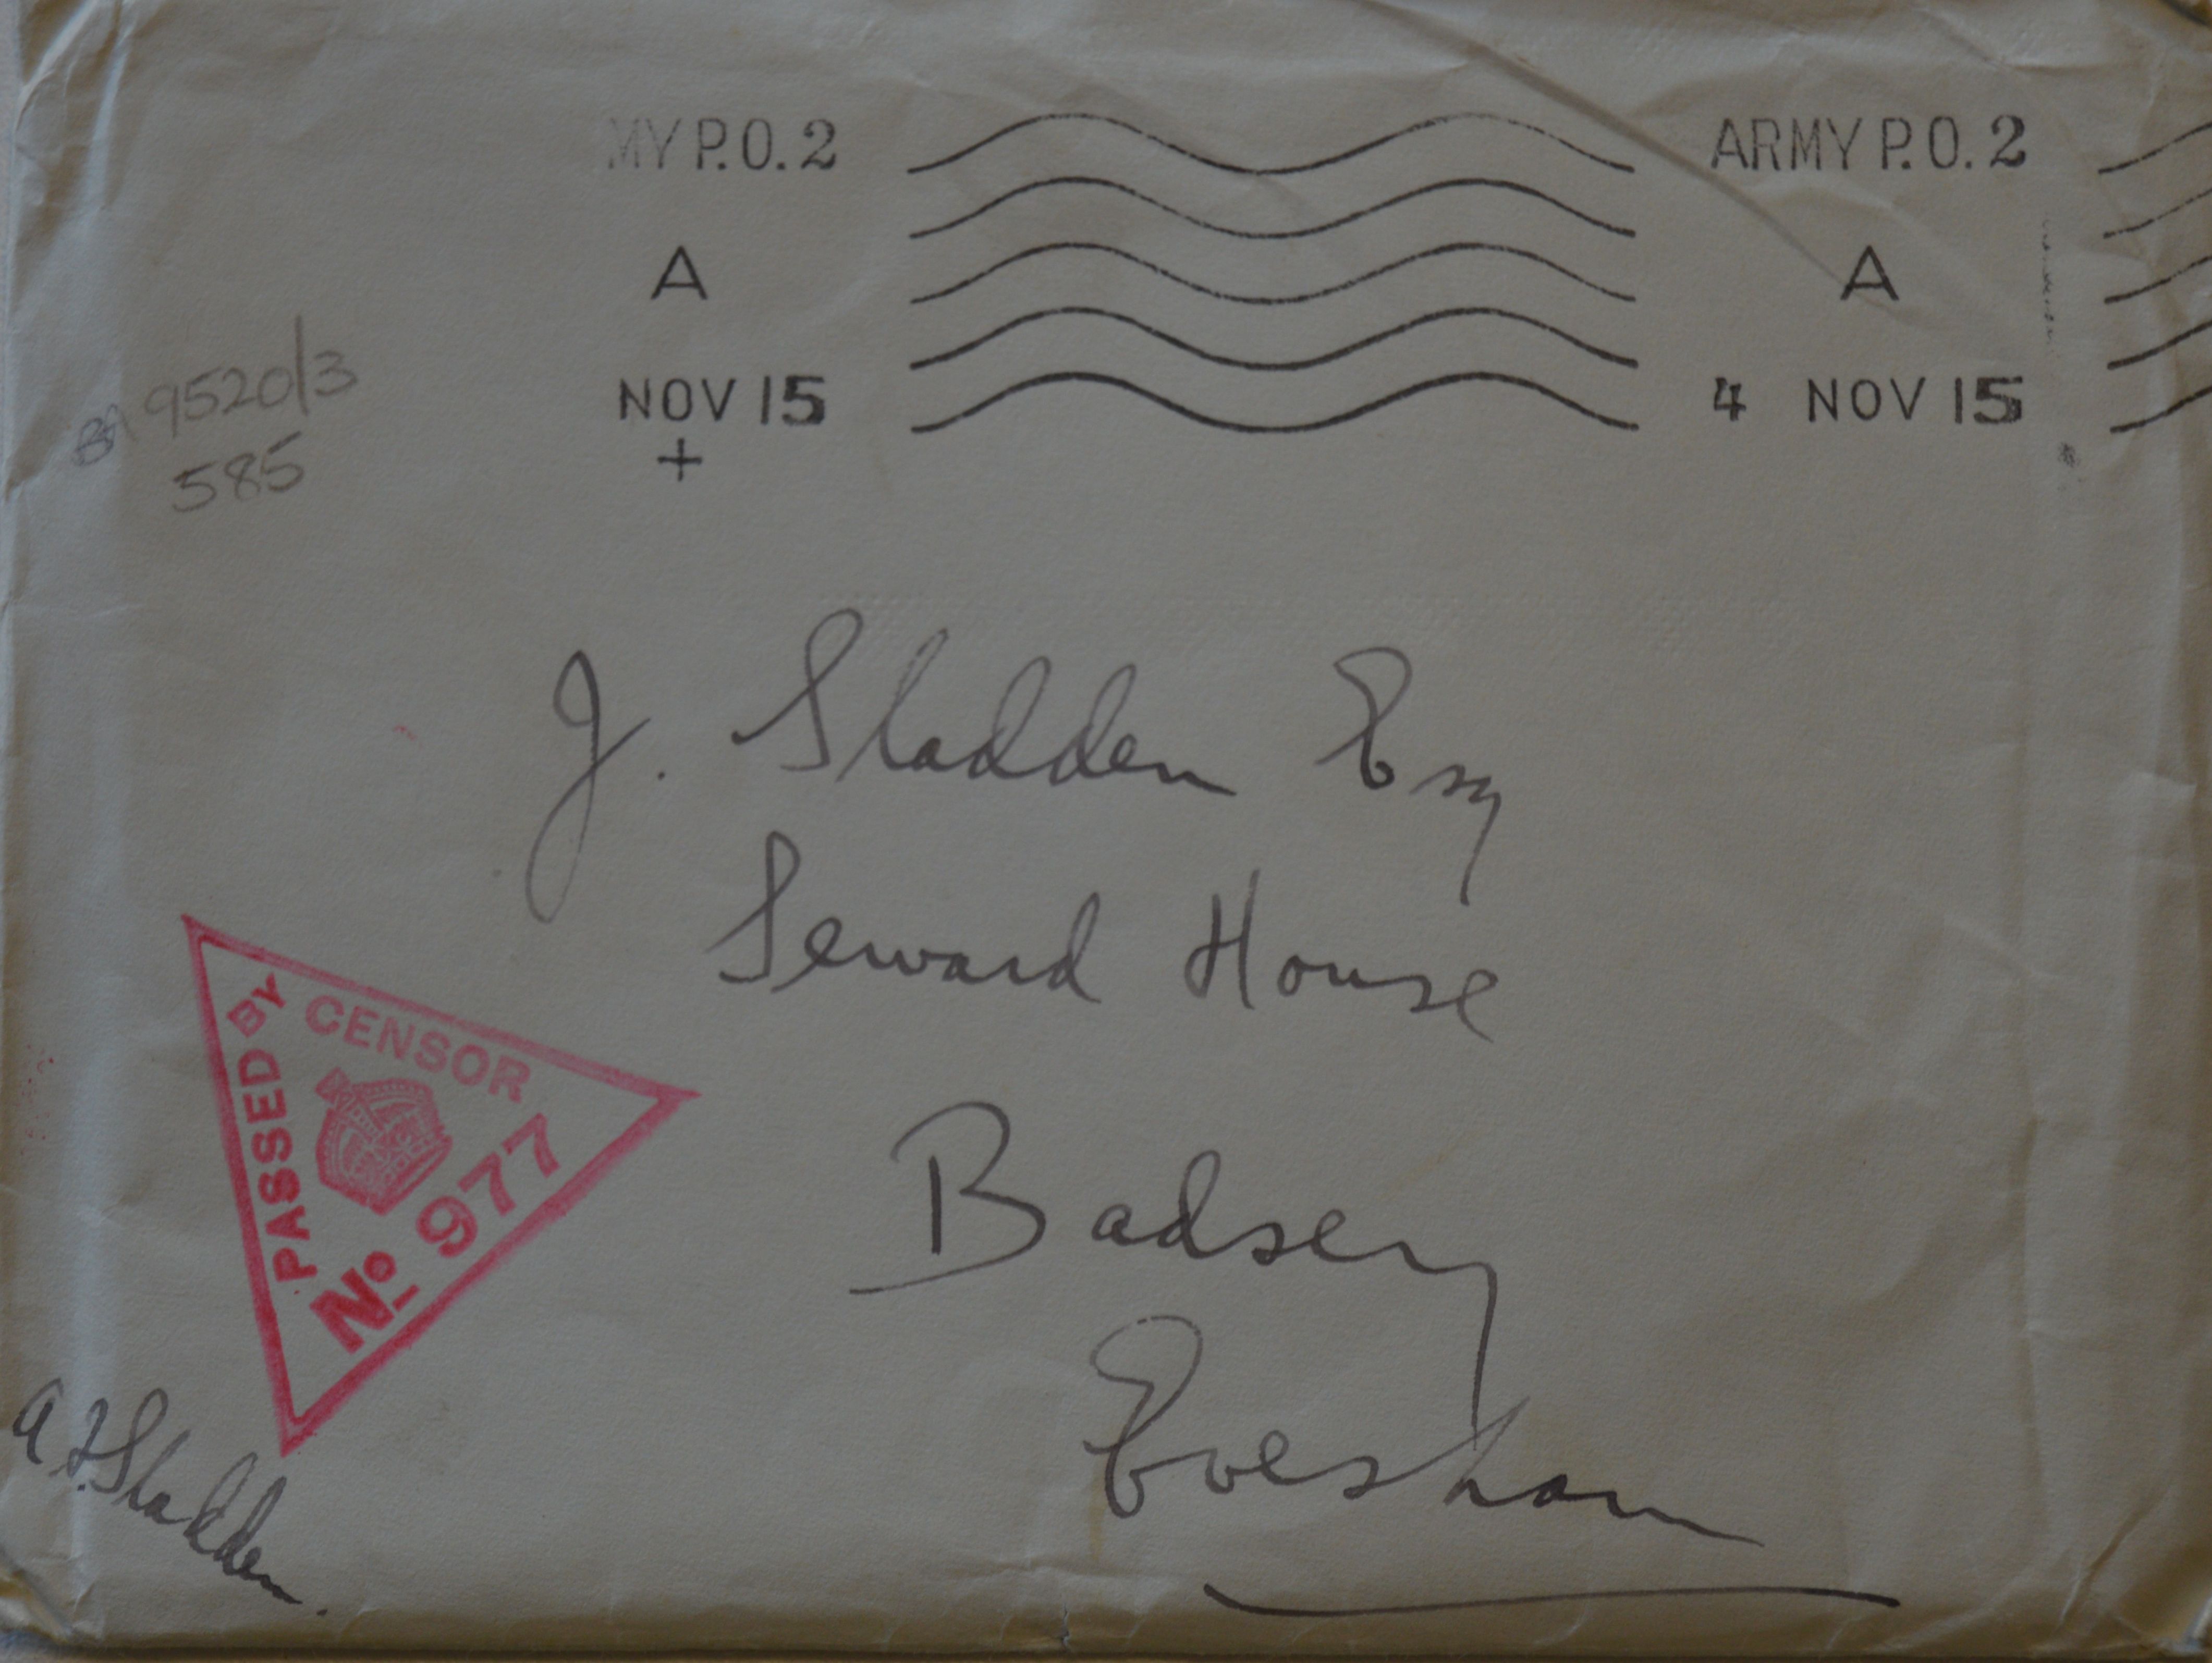 MY P.O. 2 ARMY P.O. 2
A A
NOV 15 4 NOV 15
+
BA 9520/3
585
J. Sladden Esq
Seward House
Badsey
Evesham
PASSED BY CENSOR
No 977
A F. Sladden.